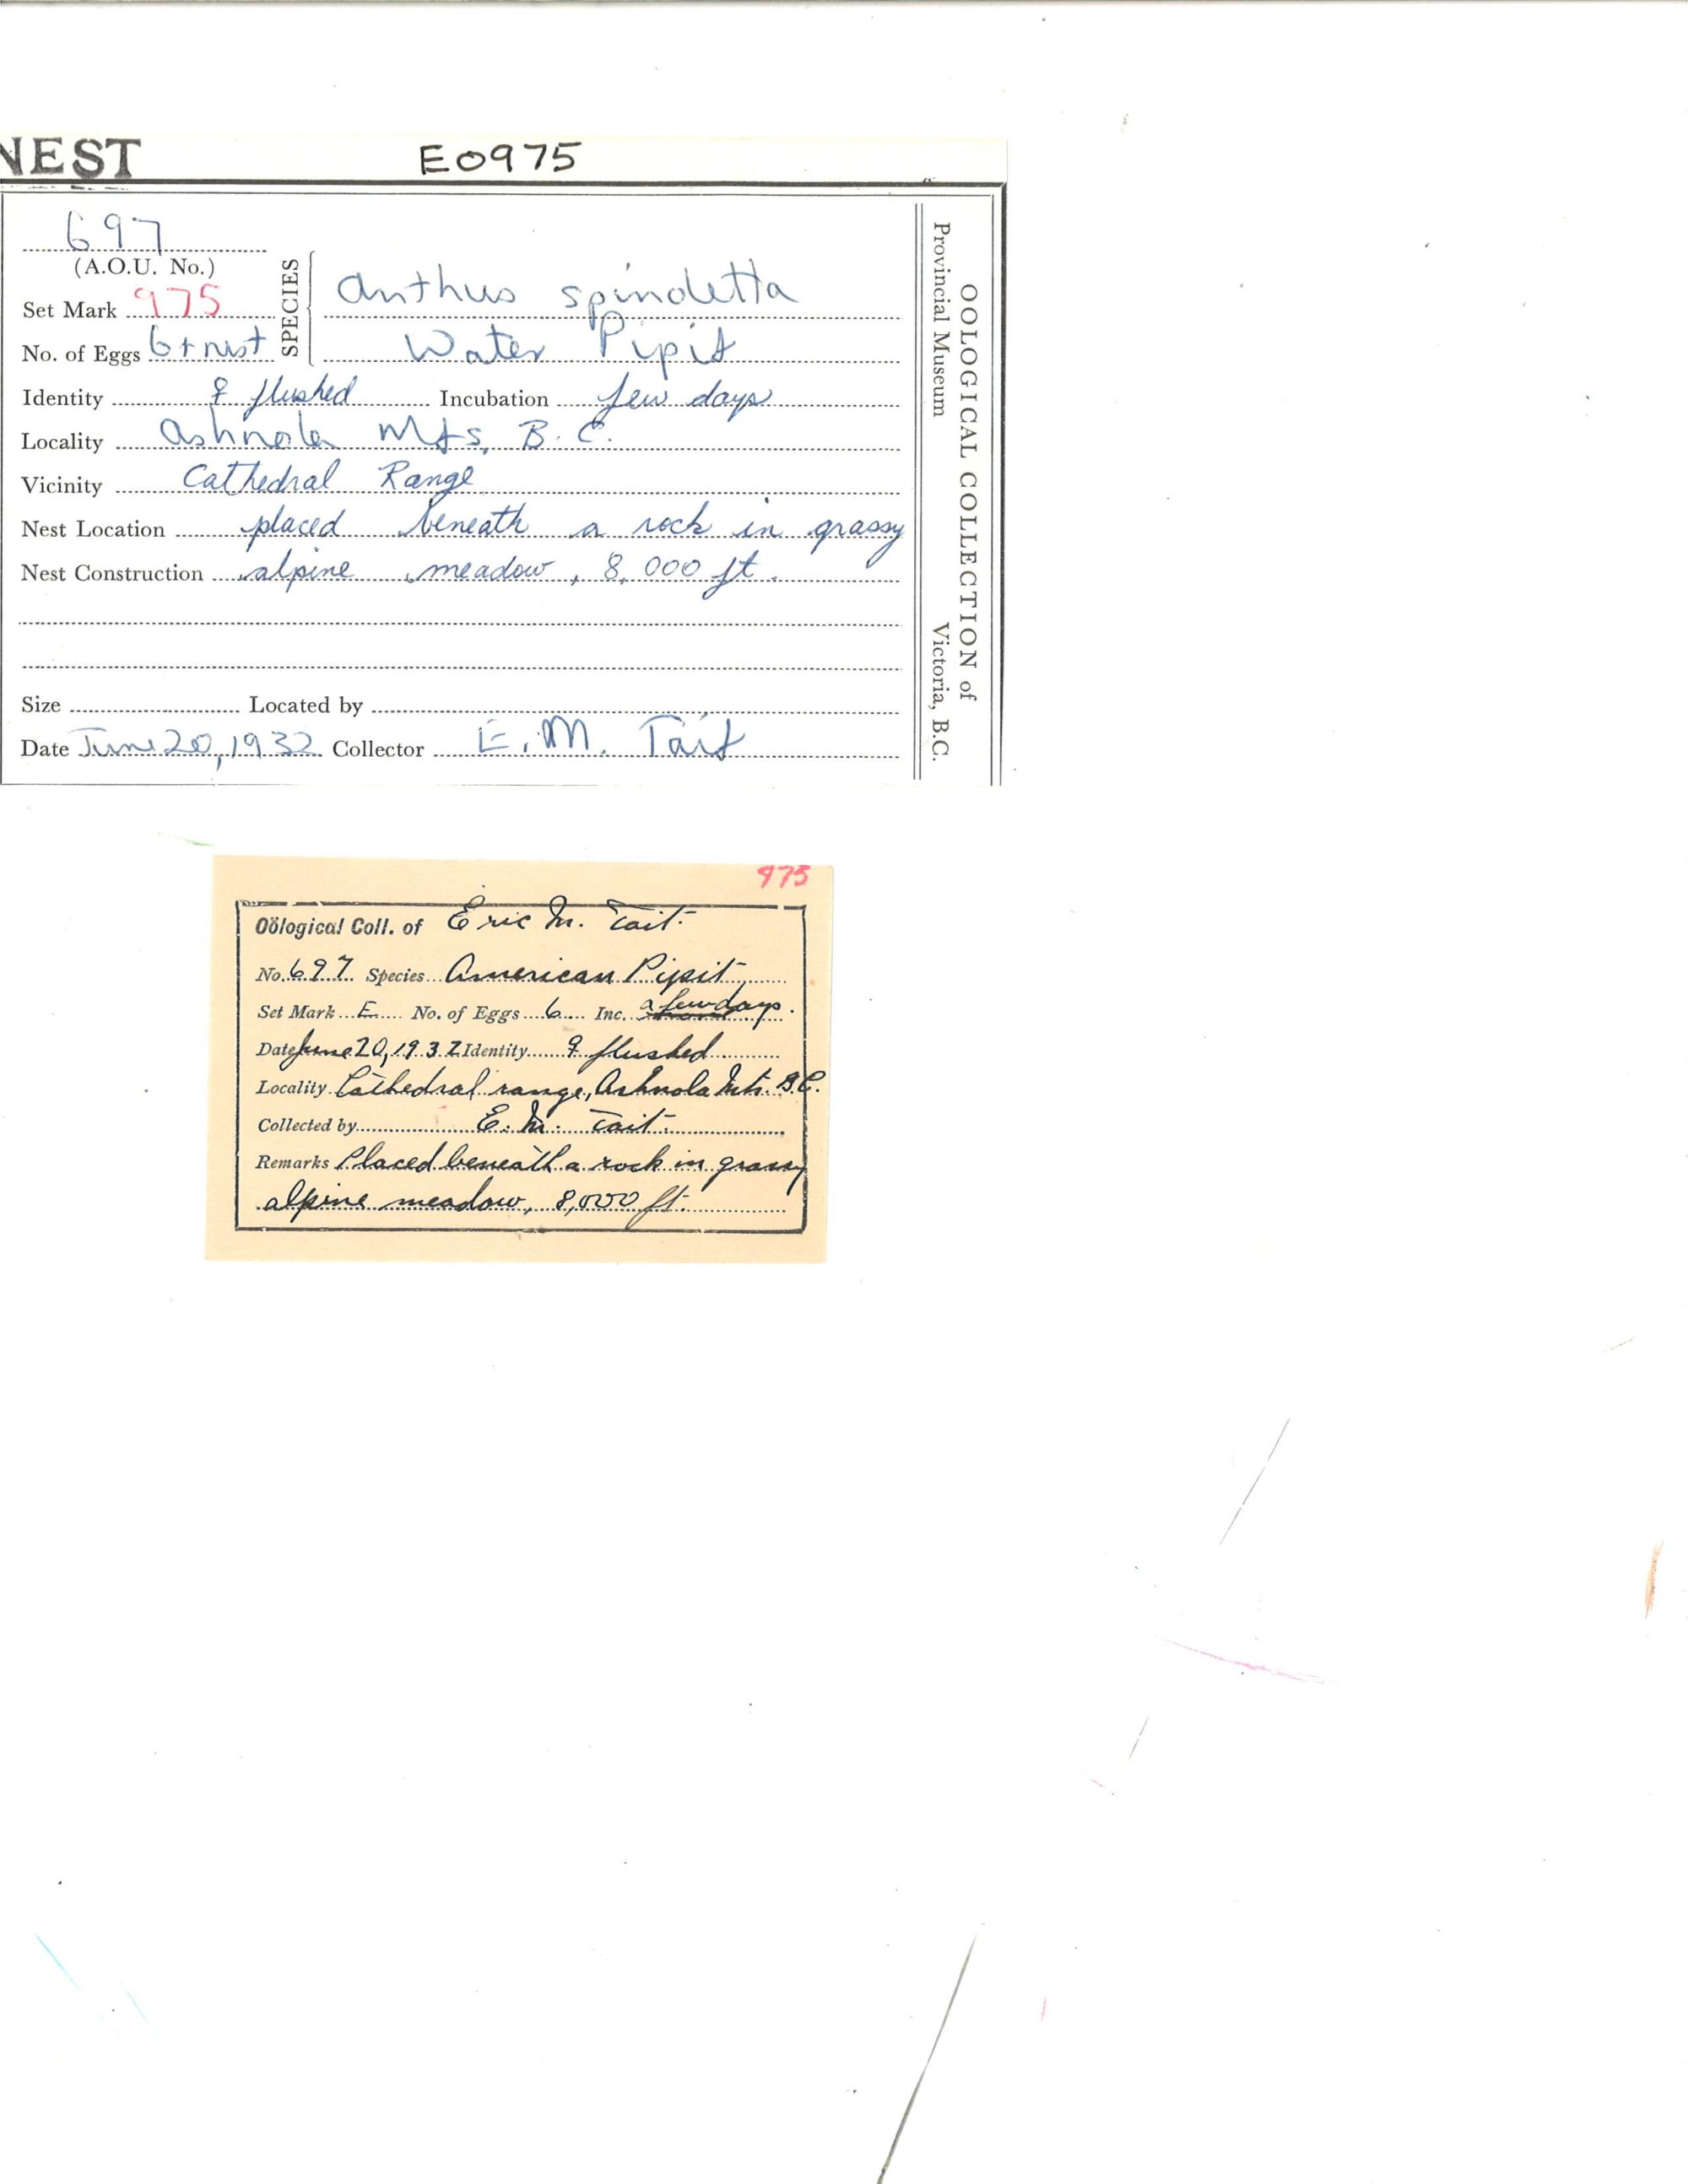 NEST E0975
697
(A.O.U. No.)
SPECIES
Anthus spinoletta
Set Mark 975
Water Pipit
No. of Eggs 6 + nest
Identity ♀ flushed Incubation few days
Locality Ashnola Mts, B.C.
Vicinity Cathedral Range
Nest Location placed beneath a rock in grassy
Nest Construction alpine meadow, 8,000 ft.
Size Located by
Date June 20, 1932 Collector E. M. Tait
OOLOGICAL COLLECTION of
Provincial Museum Victoria, B.C.
975
Oölogical Coll. of Eric M. Tait.
No. 697 Species American Pipit
Set Mark E No. of Eggs 6 Inc. a few days.
Date June 20, 1932 Identity ♀ flushed
Locality Cathedral range, Ashnola Mts. B.C.
Collected by E. M. Tait.
Remarks Placed beneath a rock in grassy
alpine meadow, 8,000 ft.